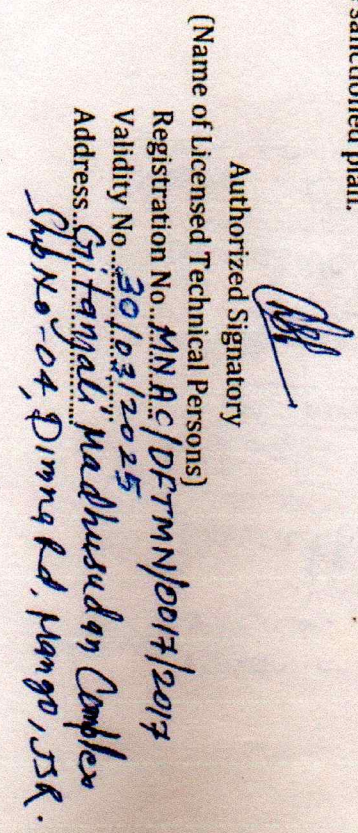 sanctioned plan.
Authorized Signatory
(Name of Licensed Technical Persons)
Registration No...MNAC/DFTMN/0017/2017
Validity No...30/03/2025
Address...Gitanjali Madhusudan Complex
Shp No-04, Dimna Rd, Mango, JSR.